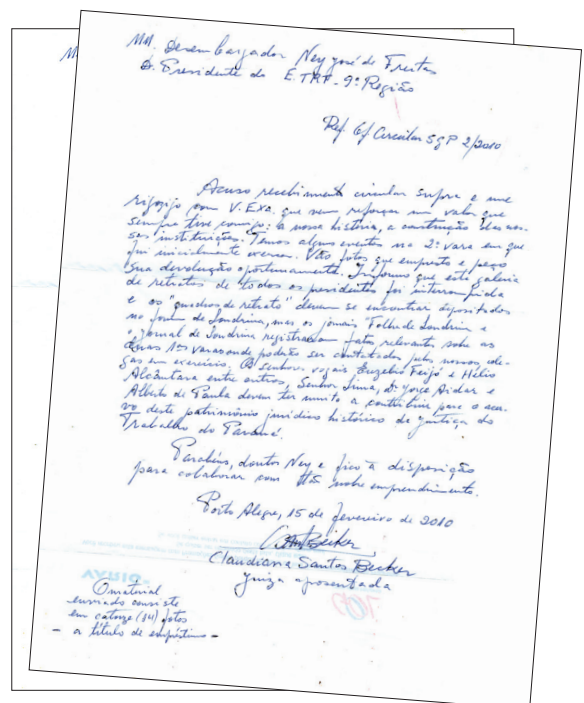 MM. Desembargador Ney José de Freitas
D. Presidente do E. TRT - 9ª Região
Ref. Of Circular SGP 2/2010
Acuso recebimento circular supra e me
rigozijo com V. Exa. que vem reforçar um valor que
sempre tive comigo: a nossa história, a construção das nos-
sas instituições. Temos alguns eventos na 2ª vara em que
fui inicialmente oversor. Vão fotos que empresto e peço
sua devolução oportunamente. Informo que esta galeria
de retratos de todos os presidentes foi interrompida
e os "quadros de retrato" devem se encontrar depositados
no forum de Londrina, mas os jornais Folha de Londrina e
o Jornal de Londrina registraram fatos relevantes sobre as
duas 1as varas onde poderão ser contatados pelos nossos cole-
gas em exercício. Os senhores vogais Euzebio Feijó e Hélio
Alcântara entre outros, Senhor Lima, Dr Joyce Aidar e
Alberto de Paula devem ter muito a contribuir para o acer-
vo deste patrimônio jurídico histórico da justiça do
Trabalho do Paraná.
Parabéns, doutor Ney e fico à disposição
para colaborar com tão nobre empreendimento.
Porto Alegre, 15 de fevereiro de 2010
Claudiana Santos Becker
Juíza aposentada
O material
enviado consiste
em catorze (14) fotos
- a título de empréstimo -